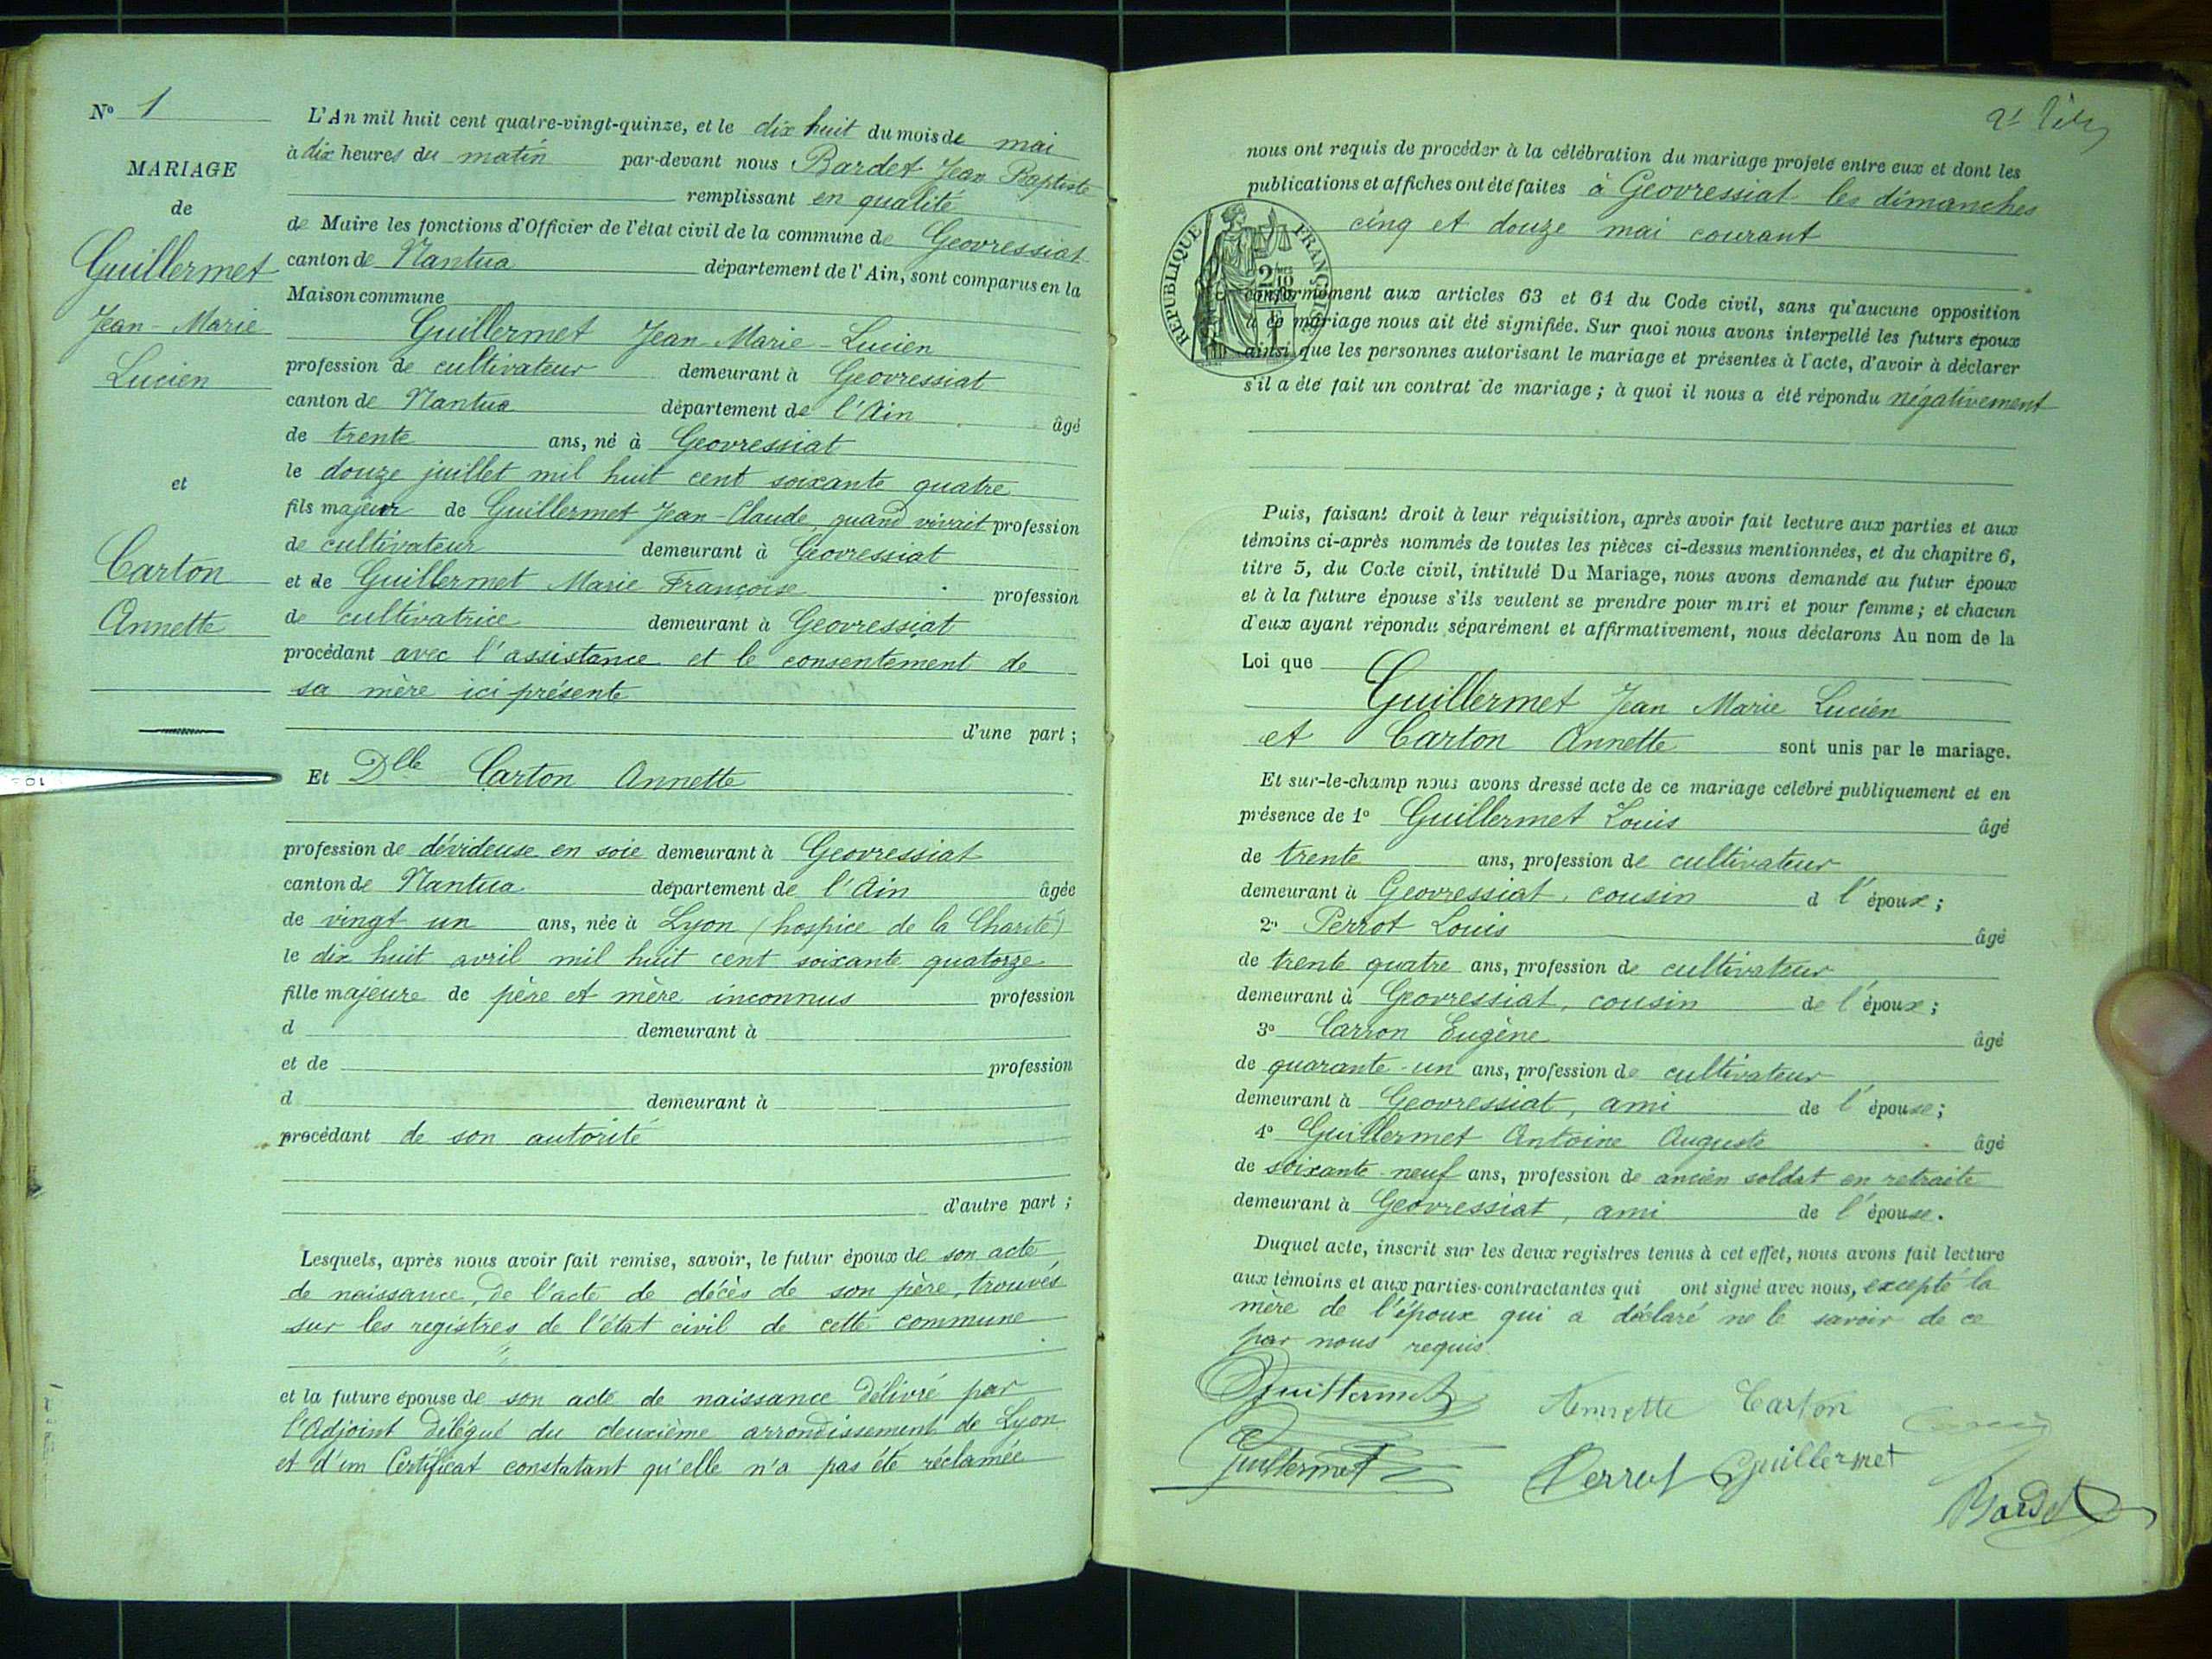 N° 1
MARIAGE
de
Guillermet
Jean-Marie
Lucien
et
Carton
Annette
L'An mil huit cent quatre-vingt-quinze, et le dix huit du mois de mai
à dix heures du matin par-devant nous Bardet Jean Baptiste
remplissant en qualité
de Maire les fonctions d'Officier de l'état civil de la commune de Geovressiat
canton de Nantua département de l'Ain, sont comparus en la
Maison commune
Guillermet Jean-Marie-Lucien
profession de cultivateur demeurant à Geovressiat
canton de Nantua département de l'Ain âgé
de trente ans, né à Geovressiat
le douze juillet mil huit cent soixante quatre
fils majeur de Guillermet Jean-Claude, quand vivait profession
de cultivateur demeurant à Geovressiat
et de Guillermet Marie Françoise profession
de cultivatrice demeurant à Geovressiat
procédant avec l'assistance et le consentement de
sa mère ici présente
d'une part ;
Et Dlle Carton Annette
profession de dévideuse en soie demeurant à Geovressiat
canton de Nantua département de l'Ain âgée
de vingt un ans, née à Lyon (hospice de la Charité)
le dix huit avril mil huit cent soixante quatorze
fille majeure de père et mère inconnus profession
d demeurant à
et de profession
d demeurant à
procédant de son autorité
d'autre part ;
Lesquels, après nous avoir fait remise, savoir, le futur époux de son acte
de naissance, de l'acte de décès de son père, trouvés
sur les registres de l'état civil de cette commune
et la future épouse de son acte de naissance délivré par
l'Adjoint délégué du deuxième arrondissement de Lyon
et d'un Certificat constatant qu'elle n'a pas été réclamée
nous ont requis de procéder à la célébration du mariage projeté entre eux et dont les
publications et affiches ont été faites à Geovressiat les dimanches
cinq et douze mai courant
RÉPUBLIQUE FRANÇAISE
conformément aux articles 63 et 64 du Code civil, sans qu'aucune opposition
à ce mariage nous ait été signifiée. Sur quoi nous avons interpellé les futurs époux
ainsi que les personnes autorisant le mariage et présentes à l'acte, d'avoir à déclarer
s'il a été fait un contrat de mariage ; à quoi il nous a été répondu négativement
Puis, faisant droit à leur réquisition, après avoir fait lecture aux parties et aux
témoins ci-après nommés de toutes les pièces ci-dessus mentionnées, et du chapitre 6,
titre 5, du Code civil, intitulé Du Mariage, nous avons demandé au futur époux
et à la future épouse s'ils veulent se prendre pour mari et pour femme ; et chacun
d'eux ayant répondu séparément et affirmativement, nous déclarons Au nom de la
Loi que
Guillermet Jean Marie Lucien
et Carton Annette sont unis par le mariage.
Et sur-le-champ nous avons dressé acte de ce mariage célébré publiquement et en
présence de 1° Guillermet Louis âgé
de trente ans, profession de cultivateur
demeurant à Geovressiat, cousin d l'époux ;
2° Perrot Louis âgé
de trente quatre ans, profession de cultivateur
demeurant à Geovressiat, cousin de l'époux ;
3° Carron Eugène âgé
de quarante-un ans, profession de cultivateur
demeurant à Geovressiat, ami de l'épouse ;
4° Guillermet Antoine Auguste âgé
de soixante-neuf ans, profession de ancien soldat en retraite
demeurant à Geovressiat, ami de l'épouse.
Duquel acte, inscrit sur les deux registres tenus à cet effet, nous avons fait lecture
aux témoins et aux parties contractantes qui ont signé avec nous, excepté la
mère de l'époux qui a déclaré ne le savoir de ce
par nous requis
Guillermet Annette Carton
Guillermet Perrot Guillermet
Bardet